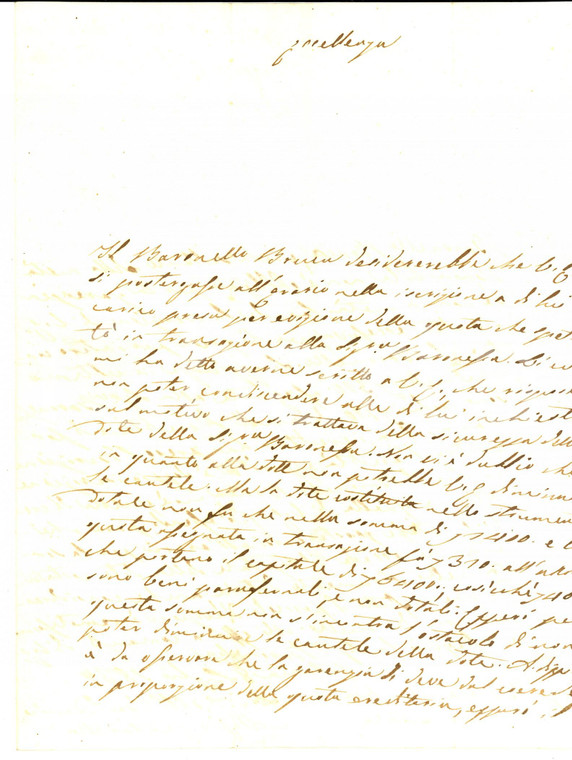 Eccellenza
Il Baronello Bruca desidererebbe che V. E.
si postergasse all'erario nella iscrizione a di lui
carico presa per evizione della quota che spet
tò in transazione alla Sigra Baronessa. Di ciò
mi ha detto averne scritto a V. E., che rispose
non poter condiscendere alle di lui inchieste
sul motivo che si trattava della sicurezza della
dote della Sigra Baronessa. Non vi è dubbio che
in quanto alla dote non potrebbe V. E. diminuire
le cautele. Ma la dote costituita nello strumento
dotale non fu che nella somma di 1400. e
questa segnata in transazione fu 310. all'anno
che portano il capitale di 6400. cosicchè
sono beni parafernali, e non dotali. Epperò per
questa somma non s'incontra l'ostacolo di non
poter diminuire le cautele della dote. A dippiù
è da osservare che la garenzia si deve dal coerede
in proporzione della quota ereditaria, epperò